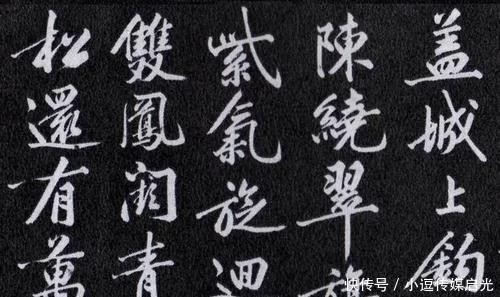 盖城上鈎
陳繞翠旂
紫氣旋迴
雙鳳闕青
松還有萬
快传号／小逗传媒启光